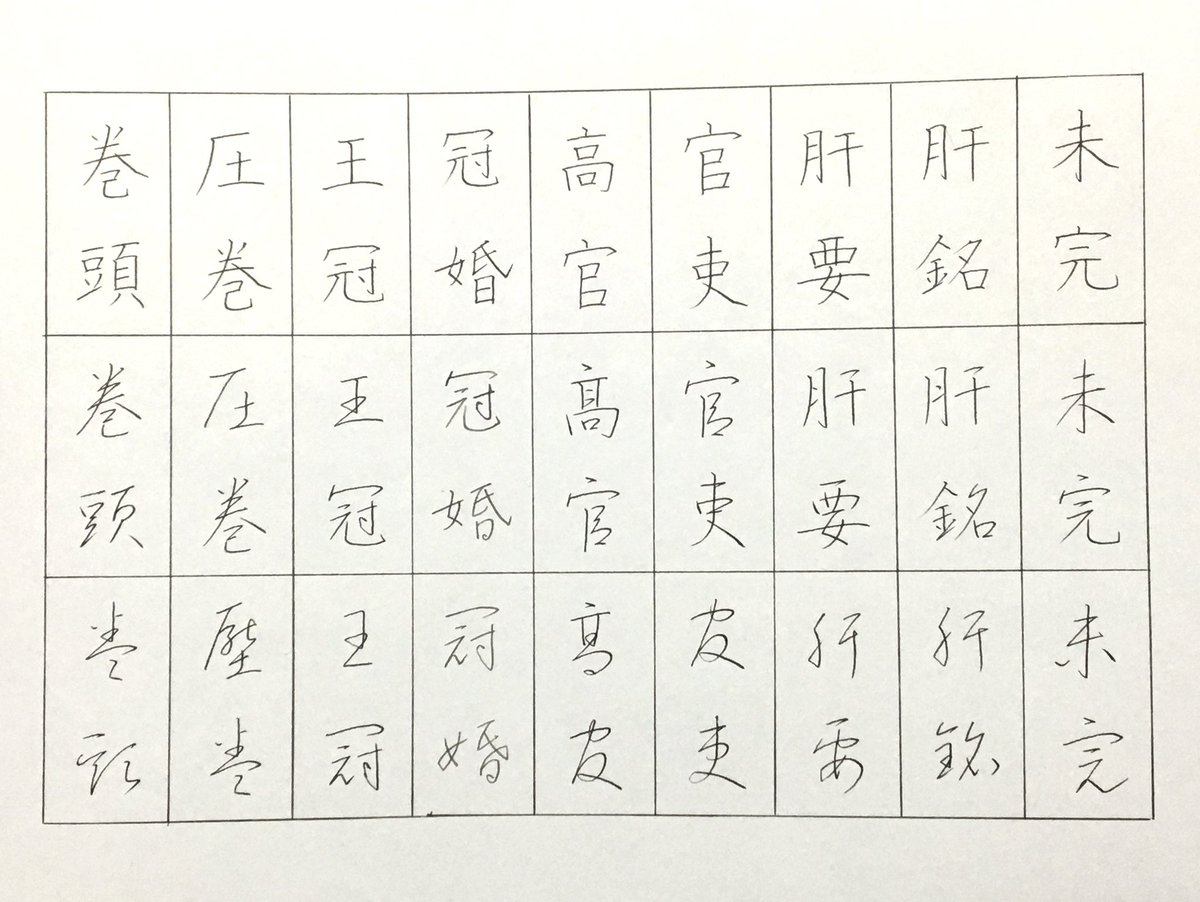 未完
肝銘
肝要
官吏
高官
冠婚
王冠
圧巻
巻頭
未完
肝銘
肝要
官吏
髙官
冠婚
王冠
圧巻
巻頭
未完
肝銘
肝要
官吏
高官
冠婚
王冠
壓巻
巻頭